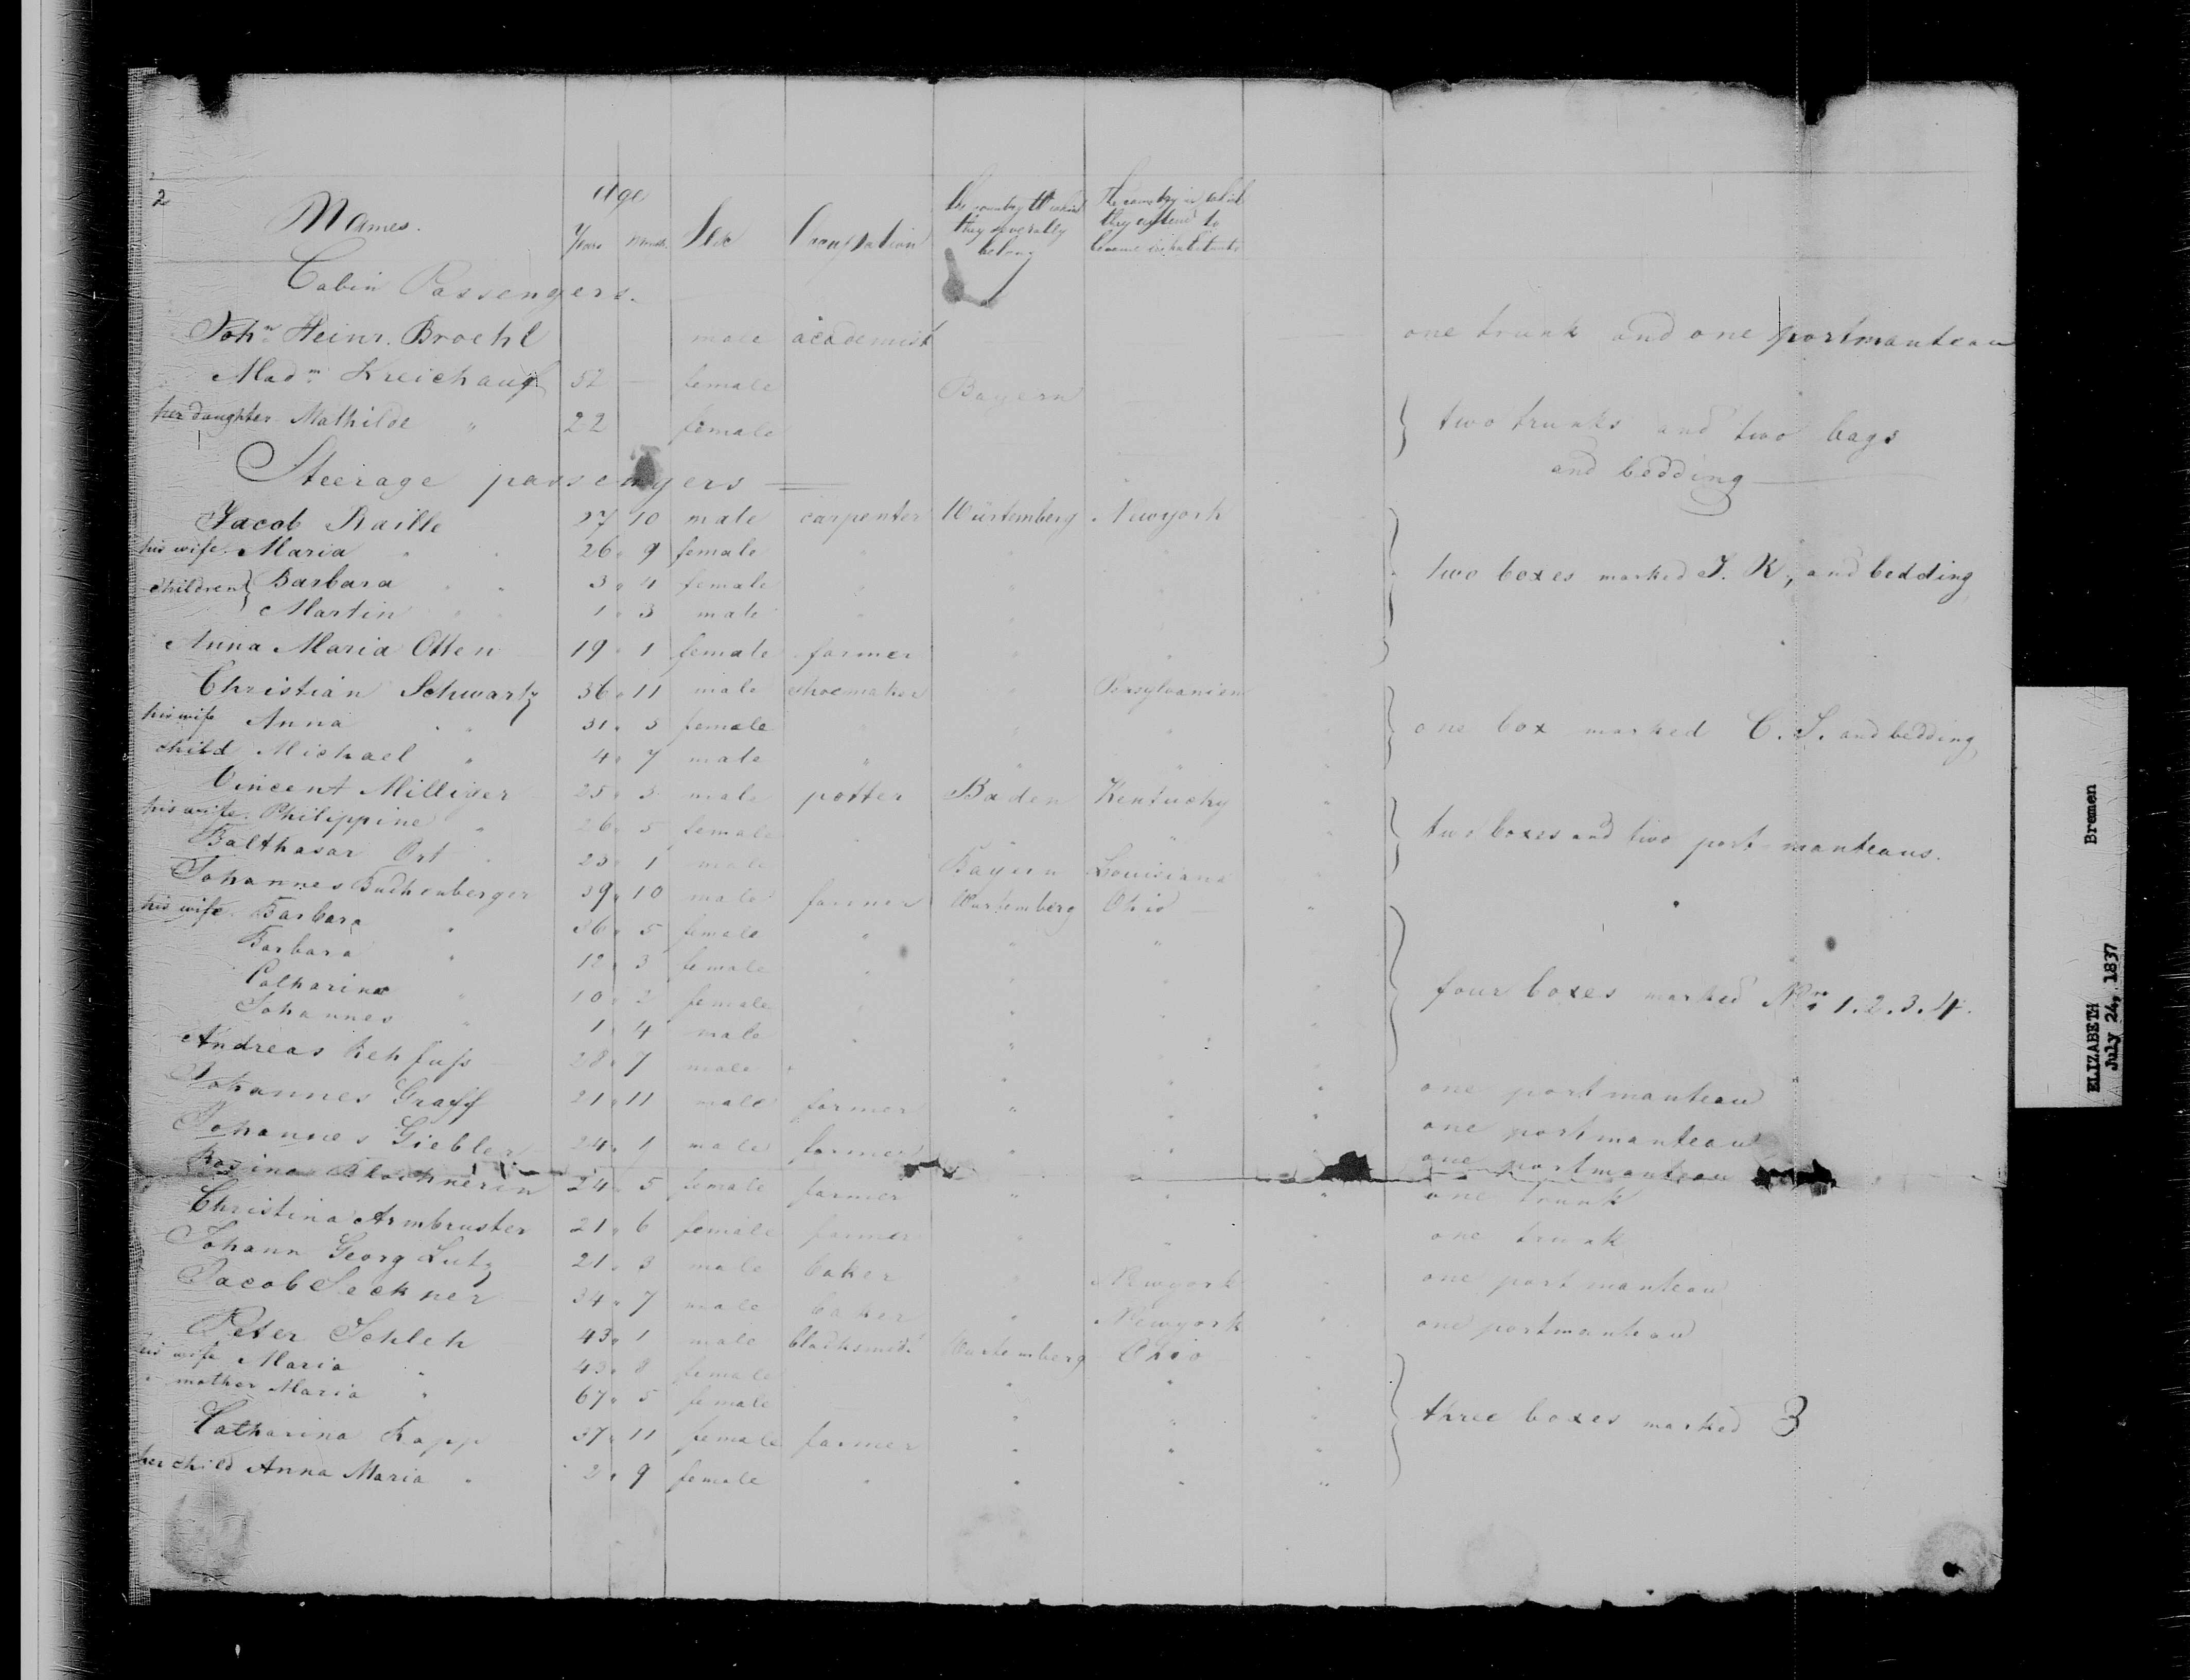 2
Names. Age Years Month. Sex Occupation The country to which they severally belong The country in which they intend to become inhabitants
Cabin Passengers.
Joh.n Heinr. Broehl male academist one trunk and one portmanteau
Mad.m Kreichauf 52 — female Bayern
her daughter Mathilde " 22 female two trunks and two bags
and bedding
Steerage passengers
Jacob Kaille 27 10 male carpenter Würtemberg Newyork
his wife. Maria " 26 9 female " "
children Barbara " 3 4 female two boxes marked J. K., and bedding
Martin " 1 3 male
Anna Maria Otten 19 1 female farmer " "
Christian Schwartz 36 11 male shoemaker "
his wife Anna " 31 5 female " " one box marked C. S. and bedding,
child Michael " 4 7 male " " "
Vincent Milliger 25 3 male potter Baden Kentucky
his wife. Philippine " 26 5 female " " two boxes and two portmanteaus.
Balthasar Ort 23 1 male Bayern Louisiana
Johannes Budhenberger 39 10 male farmer Würtemberg Ohio
his wife. Barbara " 36 5 female " " "
Barbara " 12 3 female " "
Catharina " 10 2 female " four boxes marked Nro 1. 2. 3. 4.
Johannes " 1 4 male " "
Andreas Rehfuss 28 7 male " " " one portmanteau
Johannes Graff 21 11 male farmer " " one portmanteau
Johannes Giebler 24 1 male farmer " " one portmanteau
Rosina 24 5 female farmer " " one trunk
Christina Armbruster 21 6 female farmer " " one trunk
Johann Georg Lutz 21 3 male baker " Newyork one portmanteau
Jacob Seckner 34 7 male baker " Newyork one portmanteau
Peter Schleh 43 1 male blacksmid. Würtemberg Ohio
his wife Maria " 43 8 female " "
" mother Maria " 67 5 female " " three boxes marked 3
Catharina Kapp 37 11 female farmer " "
her child Anna Maria " 2 9 female " " "
ELIZABETH Bremen
July 24, 1837